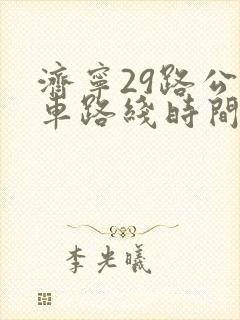 濟寧29路公
車路綫時間
李光曦